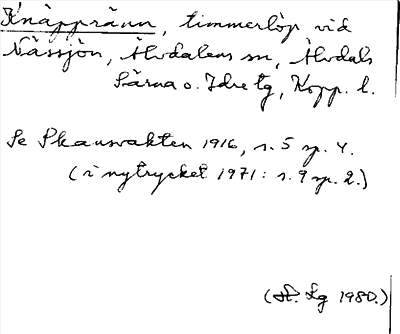 Knäppränn, timmerlöp vid
Nässjön, Älvdalens sn, Älvdals
Särna o. Idre tg, Kopp. l.
Se Skansvakten 1916, s. 5 sp. 4.
(i nytrycket 1971: s. 9 sp. 2.)
(St. Lg 1980.)